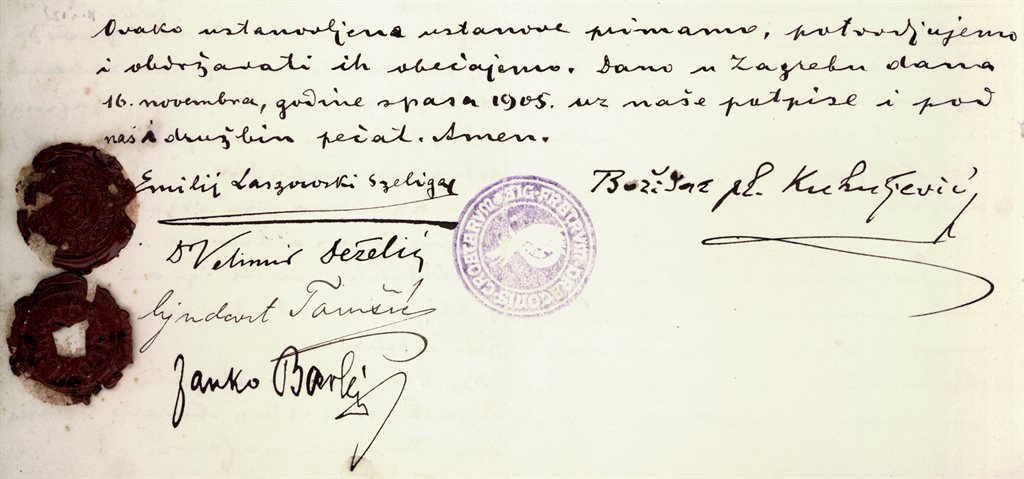 Ovako ustanovljene ustanove primamo, potvrdjujemo
i obdržavati ih obećajemo. Dano u Zagrebu dana
16. novembra, godine spasa 1905. uz naše potpise i pod
naš i družbin pečat. Amen.
Emilij Laszowski Szeliga
Božidar pl. Kukuljević
Dr Velimir Deželić
Ljudevit Tomšić
Janko Barlè
SIG. FRATRVM DRACONIS CROATARVM